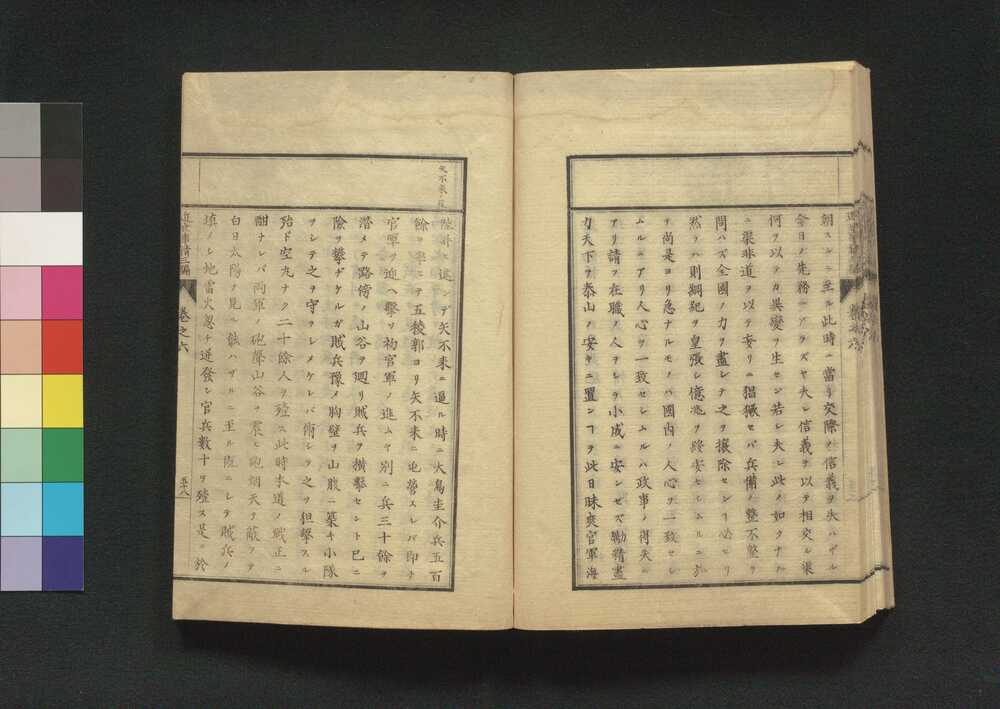 朝スルニ至ル此時ニ當リ交際ノ信義ヲ失ハザル
今日ノ先務ニアラズヤ夫レ信義ヲ以テ相交ル渠
何ヲ以テカ異變ヲ生セン若シ夫レ此ノ如クナル
ニ渠非道ヲ以テ妄リニ猖獗セバ兵備ノ整不整ヲ
問ハズ全國ノ力ヲ盡シテ之ヲ攘除センノ必セリ
然ラハ則綱紀ヲ皇張シ億兆ヲ綏安セシムルニ於
テ尚是ヨリ急ナルモノハ國内ノ人心ヲ一致セシ
ムルニアリ人心ヲ一致セシムルハ政事ノ得失ニ
アリ請フ在職ノ人ヲシテ小成ニ安ンゼズ勵精盡
力天下ヲ泰山ノ安キニ置ンヿヲ此日昧爽官軍海
矢不來ノ役
陸並ヒ進ンデ矢不來ニ逼ル時ニ大鳥圭介兵五百
餘ヲ率ヒテ五稜郭ヨリ矢不來ニ屯營スレバ即チ
官軍ヲ迎ヘ擊ツ初官軍ノ進ムヤ別ニ兵三十餘ヲ
潛メテ路傍ノ山谷ヲ廻リ賊兵ヲ横擊セント已ニ
險ヲ攀ヂケルガ賊兵豫メ胸壁ヲ山腹ニ築キ小隊
ヲシテ之ヲ守ヲシメケレバ俯シテ之ヲ狙擊スル
殆ド空丸ナク二十餘人ヲ殪ス此時本道ノ戰正ニ
酣ナレバ両軍ノ砲聲山谷ヲ震ヒ砲烟天ヲ蔽フテ
白日太陽ヲ見ル能ハザルニ至ル既ニシテ賊兵ノ
填メシ地雷火忽チ迸發シ官兵數十ヲ殪ス是ニ於
近世事情三編
卷之六
五十八